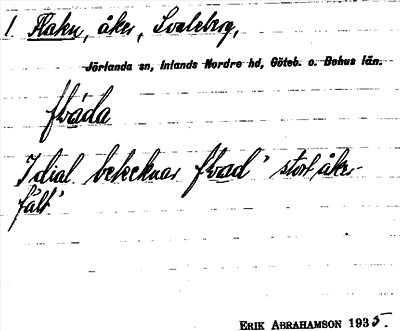 1. Flaku, åker, Svaleberg,
Jörlanda sn, Inlands Nordre hd, Göteb. o. Bohus län.
flåda
I dial. betecknar flad' stort åker-
fält'
ERIK ABRAHAMSON 1935.